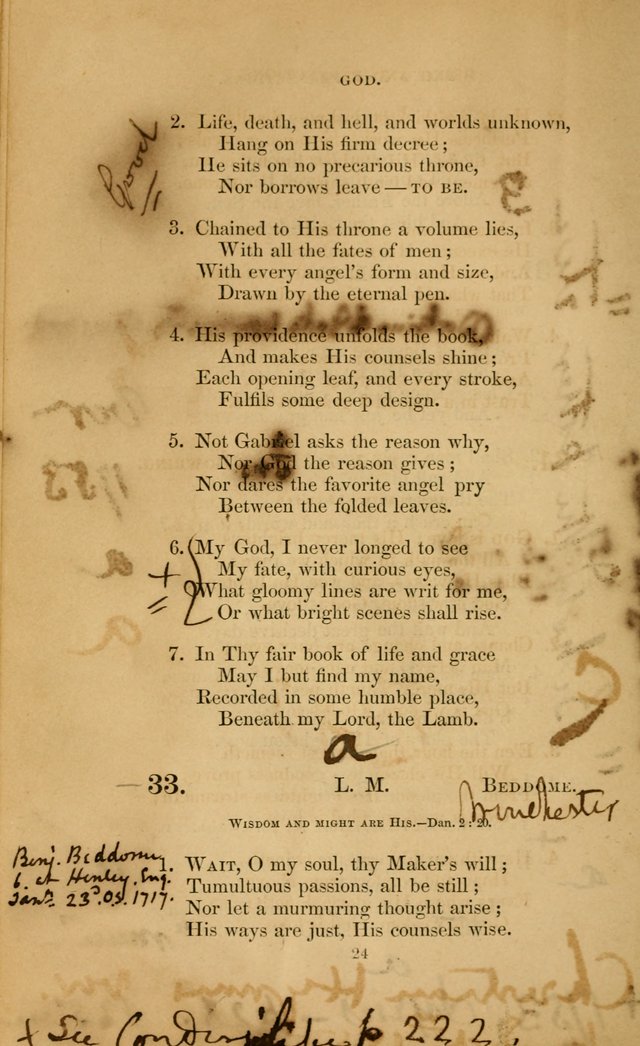 GOD.
Good
2. Life, death, and hell, and worlds unknown,
Hang on His firm decree;
He sits on no precarious throne,
Nor borrows leave — TO BE.
3. Chained to His throne a volume lies,
With all the fates of men;
With every angel's form and size,
Drawn by the eternal pen.
4. His providence unfolds the book,
And makes His counsels shine;
Each opening leaf, and every stroke,
Fulfils some deep design.
5. Not Gabriel asks the reason why,
Nor God the reason gives;
Nor dares the favorite angel pry
Between the folded leaves.
6. My God, I never longed to see
My fate, with curious eyes,
What gloomy lines are writ for me,
Or what bright scenes shall rise.
+
7. In Thy fair book of life and grace
May I but find my name,
Recorded in some humble place,
Beneath my Lord, the Lamb.
a
33. L. M. BEDDOME.
Winchester
WISDOM AND MIGHT ARE HIS.—Dan. 2: 20.
Benj. Beddome,
b. at Henley, Eng.
Jany. 23d. O.S. 1717.
WAIT, O my soul, thy Maker's will;
Tumultuous passions, all be still;
Nor let a murmuring thought arise;
His ways are just, His counsels wise.
24
+ See p 222.